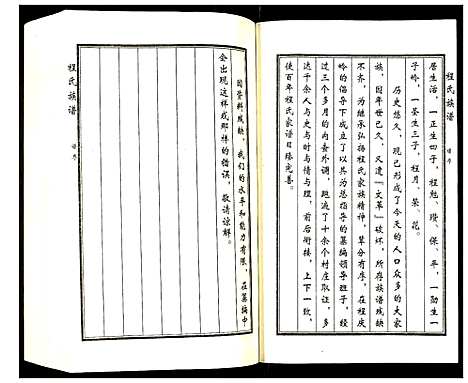 程氏族谱
谱序
居生活，一正生四子，程勉、瓒、保、平，一勋生一
子岭，一奎生三子，程月、荣、花。
历史悠久，现已形成了今天的人口众多的大家
族，因年世已久，又遭『文革』破坏，所存族谱残缺
不齐，为继承弘扬程氏家族精神，辈分有序，在程皮
岭的倡导下成立了以其为总指导的纂编领导班子，经
过三个多月的内查外调，跑遍了十余个村庄取证，多
达千余人，与史与时与情与理，前后衔接，上下一致，
使百年程氏家谱日臻完善。
因资料残缺，我们的水平和能力有限，在纂编中
会出现这样或那样的错误，敬请谅解。
程氏族谱
谱序